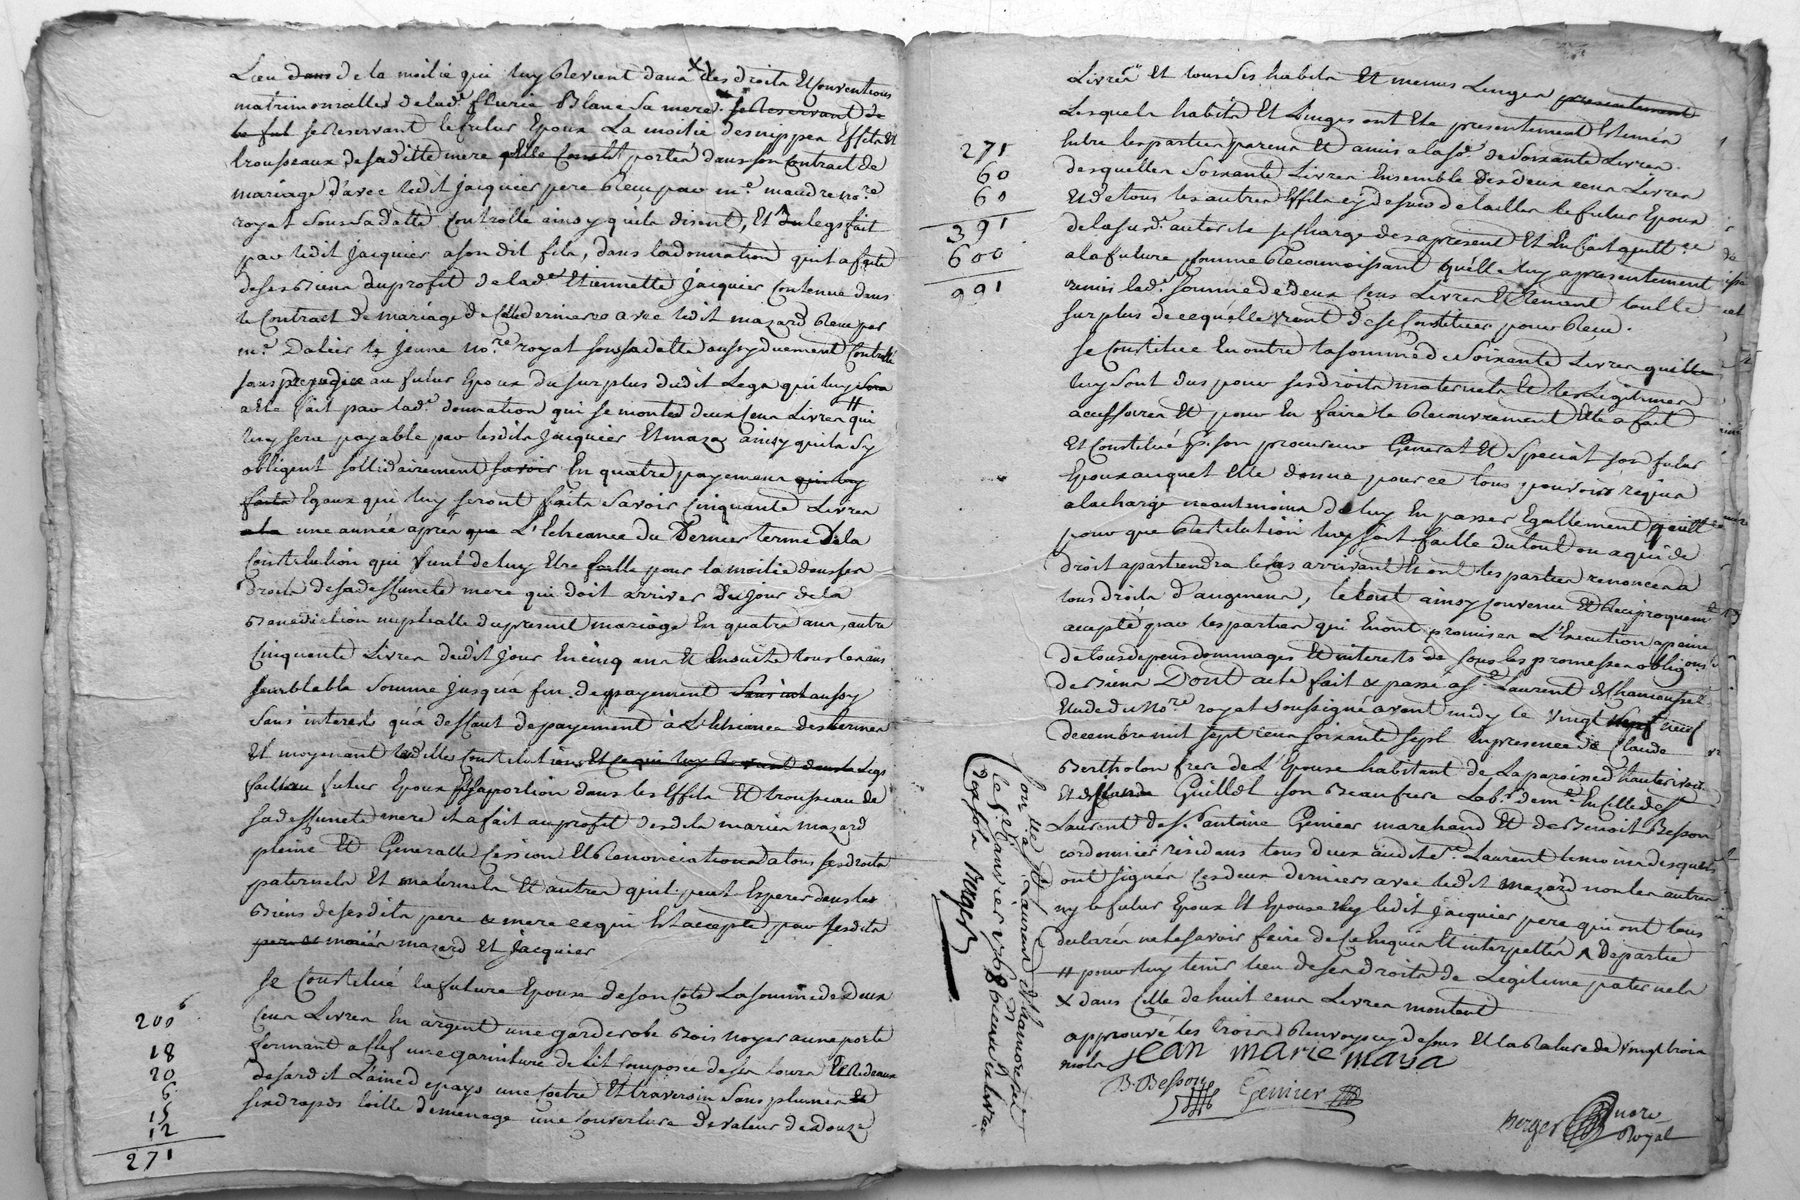 Lieu dans de la moitié qui luy Revient dans les droits Et Conventions
matrimonialles de lad.e fleurie Blanc Sa mere Se Reservant de
le fut se Reservant le futur Epoux La moitié des nippes Effets Et
trousseaux de sa ditte mere portés dans son Contract de
mariage d'avec ledit jacquier pere Receu par m.e no.re
royal sous sa datte Controllé ainsy qu'ils disent, Et du legs fait
par ledit jacquier a son dit fils, dans la donnation qu'il a faite
de ses Biens au profit de lad.e Etiennette jacquier Contenue dans
le Contract de mariage de Cette derniere avec ledit mazard Receu par
m.e Daleir le jeune no.re royal sous sa datte aussy duement Controllé
sans prejudice au futur Epoux du surplus dudit Legs qui luy
a Eté fait par lad.e donnation qui se monte a deux Cens Livres # qui
luy sera payable par lesdits jacquier Et mazard ainsy qu'ils sy
obligent sollidairement savoir En quatre payemens qui luy
faits Egaux qui luy seront faits Savoir Cinquante Livres
une année apres que L'Echeance du Dernier terme De la
Constitution qui Vient de luy Etre faitte pour la moitié dans ses
droits de sa deffunte mere qui doit arriver du jour de la
Benediction nuptialle du present mariage En quatre ans, autre
Cinquante Livres dudit jour En cinq ans Et Ensuitte tous les ans
semblable Somme jusqu'a fin de payement aussy
sans interests qu'a deffaut de payement à L'Echeance des termes
Et moyenant laditte Constitution Et ce qui luy Revient dans le Legs
fait au futur Epoux Et sa portion dans les Effets Et trousseau de
sa deffunte mere il a fait au profit desdits mariés mazard
pleine Et Generalle Cession Et Renonciation a tous ses droits
paternels Et maternels Et autres qu'il peut Esperer dans les
Biens de sesdits pere & mere ce qui Est accepté par lesdits
pere & mariés mazard Et jacquier
Se Constitue la future Epouse de son coté La somme de deux
Cens Livres En argent une garderobe Bois noyer a une porte
fermant a clef une garniture de lit Composée de ses tours Et Rideaux
de sardit Laine de pays une Coetre Et traversin sans plumes
six draps toille de menage une Couverture de valeur de douze
200
18
20
6
15
12
271
Livres Et tous ses habits Et menus Linges presentement
Lesquels habits Et Linges ont Eté presentement Estimés
Entre les parties parens Et amis a la so.e de Soixante Livres
desquelles Soixante Livres Ensemble des deux cens Livres
Et de tous les autres Effets cy dessus detaillés le futur Epoux
de la susd. autorité se charge des apresent Et En fait quitt.ce
a la future comme Reconnoissant qu'elle luy a presentement
remis lad.e Somme de deux Cens Livres Et tient tout le
surplus de ce qu'elle vient de se Constituer pour Receu.
Se Constitue En outre la somme de Soixante Livres qui
luy sont dus pour ses droits maternels Et
accessoires Et pour En faire le Recouvrement Elle a fait
Et Constitué p.r son procureur General Et Special son futur
Epoux auquel Elle donne pour ce tous pouvoirs requis
a la charge neantmoins de luy En passer Egallement quitt.ce
pour que Restitution luy soit faitte du tout ou a qui de
droit apartiendra le cas arrivant Et ont les parties renoncé a
tous droits d'augmens, le tout ainsy convenu Et Reciproquem.t
accepté par les parties qui En ont promis L'Execution a peine
de tous depens dommages Et interests de sous les promesses oblig.ons
de Biens Dont acte fait & passé a S.t Laurent de Chamousset
Etude du No.re royal soussigné avant midy le vingt neuf
decembre mil sept cens soixante sept En presence de Claude
Bertholon frere de L'Epouse habitant de La paroisse d'hauterivoire
Et de Guillot son Beaufrere Lab.r de m.e En Celle de S.t
Laurent de S.t antoine Genier marchand Et de Benoit Besson
cordonnier residans tous deux audit S.t Laurent temoins desquels
ont signés ces deux derniers avec ledit mazard non les autres
ny le futur Epoux Et Epouse ny ledit jacquier pere qui ont tous
declarés ne le savoir faire de ce Enquis Et interpellés A Departie
# pour luy tenir lieu de ses droits de Legitime paternels
X dans Celle de huit cens Livres montant
approuvé les trois Renvoys cy dessus Et la Rature de vingt trois
mots
271
60
60
391
600
991
Con.llé a S.t Laurent de Chamousset
le 8 Janvier 1768 Receu dix livres
dix sols Berger
jean marie masa
B. Besson Genier
Berger no.re Royal